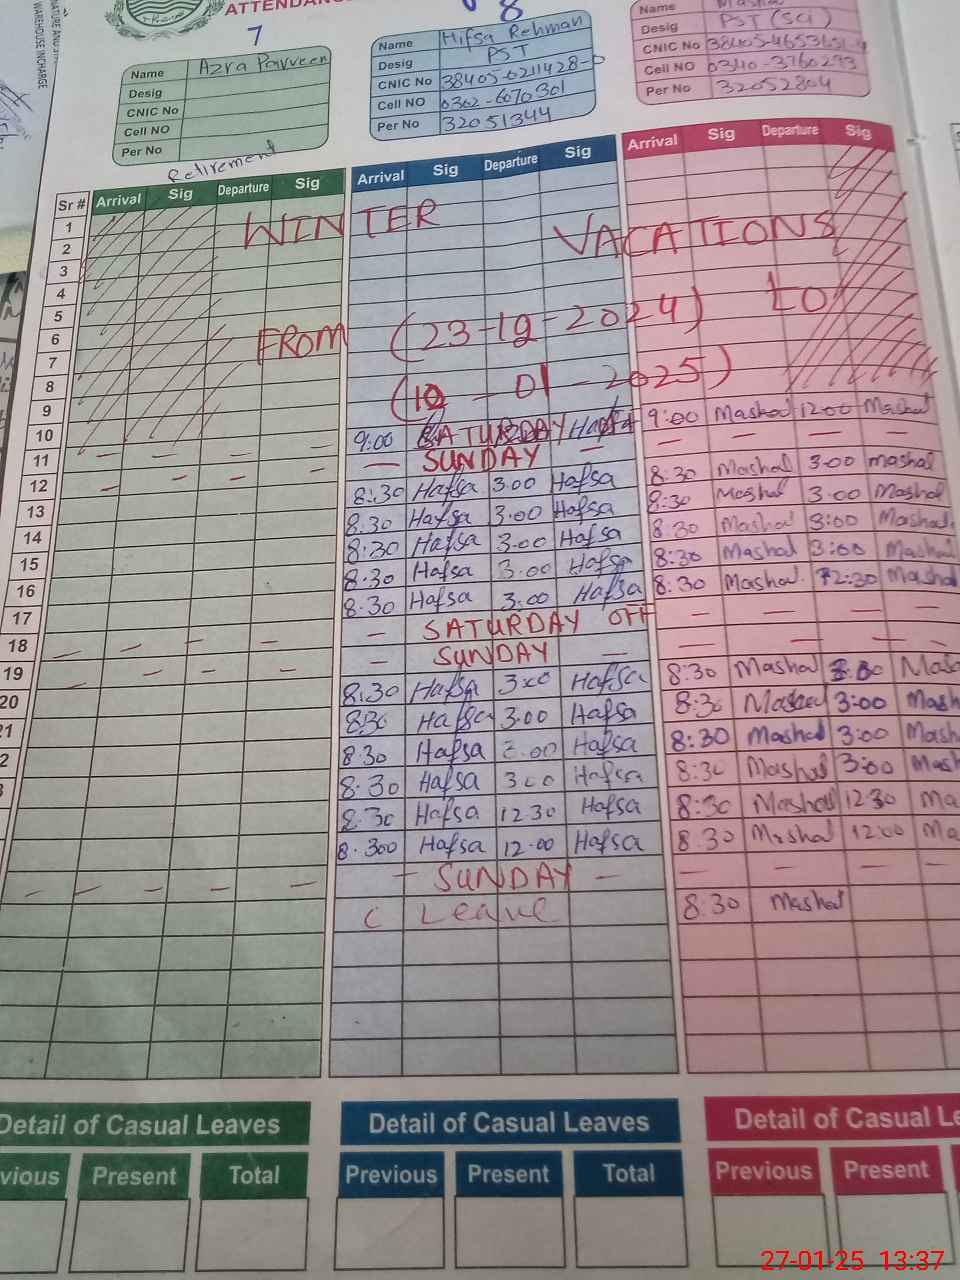 ATTENDAN
WAREHOUSE INCHARGE
7
8
Name Azra Parveen
Desig
CNIC No
Cell NO
Per No
Retirement
Name Hifsa Rehman
Desig PST
CNIC No 38405-0211428-0
Cell NO 0302-6070301
Per No 32051344
Name
Desig PST (SCI)
CNIC No
Cell NO 0340-3760293
Per No 32052804
Sr # Arrival Sig Departure Sig Arrival Sig Departure Sig Arrival Sig Departure Sig
1
2
3
4
5
6
7
8
9
10
11
12
13
14
15
16
17
18
19
20
WINTER VACATIONS
FROM (23-12-2024) to
(10 - 01 - 2025)
9:00 SATURDAY Hafsa 9:00 Mashal 12:00 Mashal
— SUNDAY — — — — —
8:30 Hafsa 3:00 Hafsa 8:30 Mashal 3:00 mashal
8.30 Hafsa 3:00 Hafsa 8:30 Mashal 3:00 Mashal
8:30 Hafsa 3.00 Hafsa 8:30 Mashal 3:00 Mashal
8:30 Hafsa 3.00 Hafsa 8:30 Mashal 3:00 Mashal
8:30 Hafsa 3:00 Hafsa 8:30 Mashal 12:30 Mashal
— SATURDAY OFF — — —
— SUNDAY — — — —
8:30 Hafsa 3:00 Hafsa 8:30 Mashal 3:00 Mash
8:30 Hafsa 3:00 Hafsa 8:30 Mashal 3:00 Mash
8:30 Hafsa 3:00 Hafsa 8:30 Mashal 3:00 Mash
8:30 Hafsa 3:00 Hafsa 8:30 Mashal 3:00 Mash
8:30 Hafsa 12:30 Hafsa 8:30 Mashal 12:30 Ma
8.300 Hafsa 12.00 Hafsa 8.30 Mashal 12:00 Ma
— SUNDAY — — — — —
C Leave 8:30 Mashal
Detail of Casual Leaves Detail of Casual Leaves Detail of Casual Le
vious Present Total Previous Present Total Previous Present
27-01-25 13:37